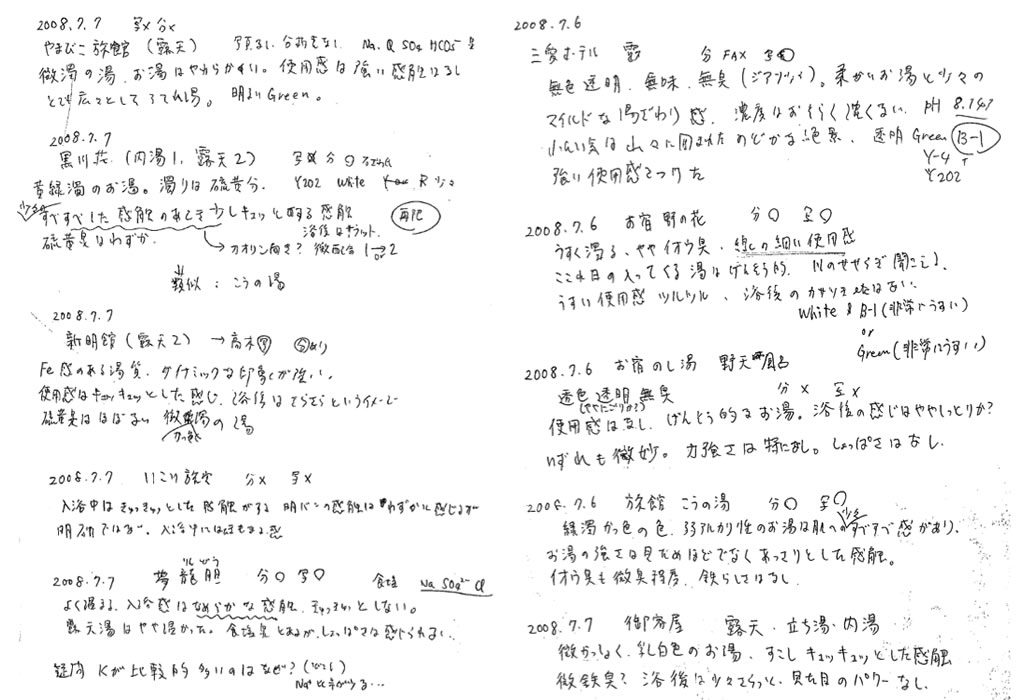 2008.7.7 写× 分×
やまびこ旅館 (露天) 写真なし、分析表なし Na. Cl SO4 HCO3-
微濁の湯、お湯はやわらかい。使用感は強い感触はなし
とても広々としてる。明るいGreen。
2008.7.7
黒川荘 (内湯1、露天2) 写× 分○
黄緑濁のお湯。濁りは硫黄分、Y202 White R 少々
すべすべした感触のあとで少しキュッとする感触 再犯
硫黄臭はわずか. 浴後はサラット.
カオリン向き? 微配合 1 or 2
類似:こうの湯
2008.7.7
新明館 (露天2) → 高木写 分あり
Fe感のある湯質、ダイナミックな印象が強い、
使用感はキュッキュッとした感じ、浴後はさらさらというイメージ
硫黄臭はほぼない 微濁の湯
2008.7.7 いこい旅館 分× 写×
入浴中はきゅっきゅっとした感触がする 明バンの感触はわずかに感じるが
明確ではない、入浴中には
2008.7.7 夢龍胆 りんどう 分○ 写○ 食塩 Na SO4 2- Cl
よく温まる、入浴感はなめらかな感触、きゅっきゅっとしない。
露天湯はやや温かった。食塩泉とあるが、しょっぱさは感じられない
疑問 Kが比較的多いのはなぜ?
Na+
2008.7.6
三愛ホテル 露 分 FAX 写○
無色透明、無味、無臭 。柔かいお湯と少々の
マイルドな湯ざわり感、濃度はおそらく濃くない、PH 8.147
ふんい気は山々に囲まれたのどかな絶景、透明 Green B-1
Y-4
強い使用感 Y202
2008.7.6 お宿 野の花 分○ 写○
うすく濁る、やや イオウ臭、線の細い使用感
ここも日の入ってくる湯はげんそう的、川のせせらぎ聞こえる、
うすい使用感 ツルツル、浴後の はない
White & B-1 (非常にうすい)
or
Green (非常にうすい)
2008.7.6 お宿のし湯 野天風呂
透色透明 無臭 分× 写×
(ややにごりか?)
使用感はなし、げんそう的なお湯。浴後の感じはややしっとりか?
いずれも微妙。力強さは特になし。しょっぱさはなし、
2008.7.6 旅館 こうの湯 分○ 写○
緑濁かっ色の色、弱アルカリ性のお湯は肌への少々すべすべ感があり、
お湯の強さは見ためほどでなくあっさりとした感触。
イオウ臭も微臭程度、鉄らしさはなし、
2008.7.7 御客屋 露天・立ち湯・内湯
微かっしょく、乳白色のお湯、すこしキュッキュッとした感触
微鉄臭? 浴後は少々さらっと、見た目のパワーなし、